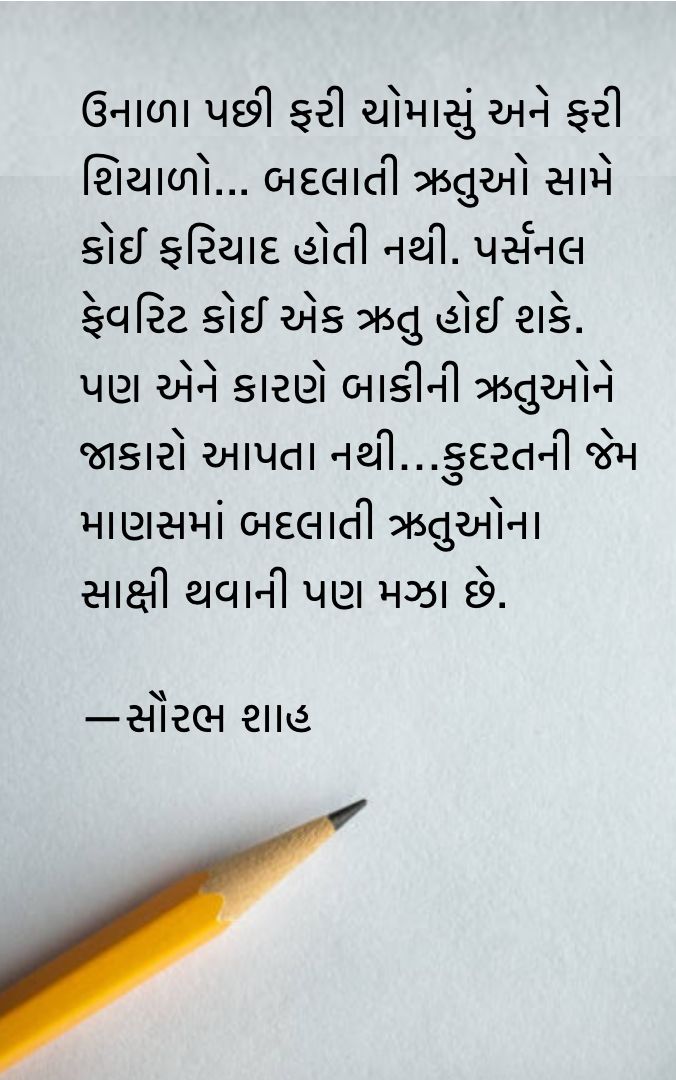 ઉનાળા પછી ફરી ચોમાસું અને ફરી
શિયાળો... બદલાતી ઋતુઓ સામે
કોઈ ફરિયાદ હોતી નથી. પર્સનલ
ફેવરિટ કોઈ એક ઋતુ હોઈ શકે.
પણ એને કારણે બાકીની ઋતુઓને
જાકારો આપતા નથી...કુદરતની જેમ
માણસમાં બદલાતી ઋતુઓના
સાક્ષી થવાની પણ મઝા છે.
—સૌરભ શાહ